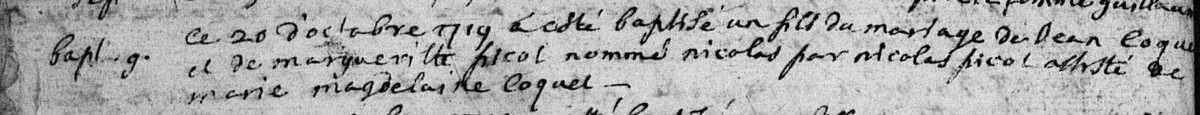 bapt. g. ce 20 d'octabre 1719 a esté baptisé un fils du mariage de Jean Coquel
et de margueritte picot nommé nicolas par nicolas picot assisté de
marie magdelaine Coquel —